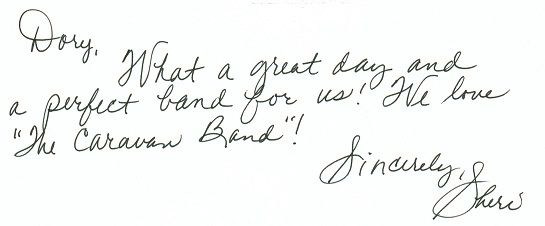 Dory,
What a great day and
a perfect band for us! We love
"The Caravan Band"!
Sincerely,
Sheri